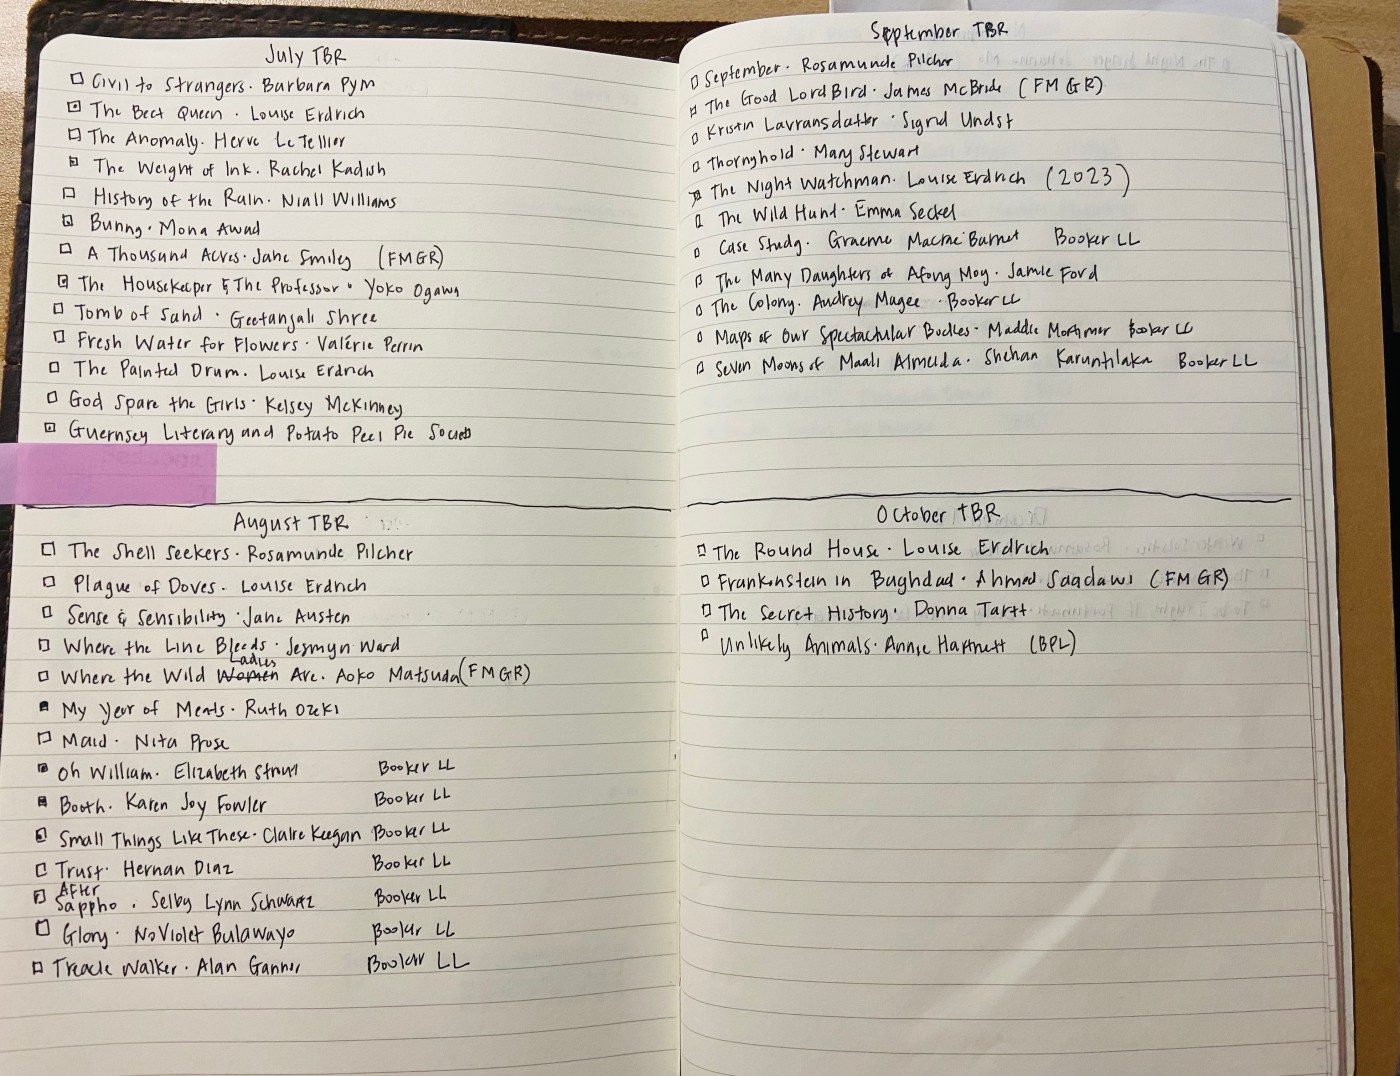 July TBR
Civil to Strangers. Barbara Pym
The Beet Queen. Louise Erdrich
The Anomaly. Herve Le Tellier
The Weight of Ink. Rachel Kadish
History of the Rain. Niall Williams
Bunny. Mona Awad
A Thousand Acres. Jane Smiley (FMGR)
The Housekeeper & The Professor. Yoko Ogawa
Tomb of Sand. Geetanjali Shree
Fresh Water for Flowers. Valérie Perrin
The Painted Drum. Louise Erdrich
God Spare the Girls. Kelsey McKinney
Guernsey Literary and Potato Peel Pie
August TBR
The Shell Seekers. Rosamunde Pilcher
Plague of Doves. Louise Erdrich
Sense & Sensibility. Jane Austen
Where the Line Bleeds. Jesmyn Ward
Ladies
Where the Wild Women Are. Aoko Matsuda (FMGR)
My Year of Meats. Ruth Ozeki
Maid. Nita Prose
Oh William. Elizabeth Booker LL
Booth. Karen Joy Fowler Booker LL
Small Things Like These. Claire Keegan Booker LL
Trust. Hernan Diaz Booker LL
After
Sappho. Selby Lynn Schwartz Booker LL
Glory. NoViolet Bulawayo Booker LL
Treacle Walker. Alan Booker LL
September TBR
September. Rosamunde Pilcher
The Good Lord Bird. James McBride (FMGR)
Kristin Lavransdatter. Sigrid Undst
Thornyhold. Mary Stewart
The Night Watchman. Louise Erdrich (2023)
The Wild Hunt. Emma Seckel
Case Study. Graeme Macrae Burnet Booker LL
The Many Daughters of Afong Moy. Jamie Ford
The Colony. Audrey Magee. Booker LL
Maps of Our Spectactular Bodies. Maddie Mortimer Booker LL
Seven Moons of Maali Almeida. Shehan Karuntilaka Booker LL
October TBR
The Round House. Louise Erdrich
Frankenstein in Baghdad. Ahmed Saadawi (FMGR)
The Secret History. Donna Tartt
Unlikely Animals. Annie Hartnett (BPL)